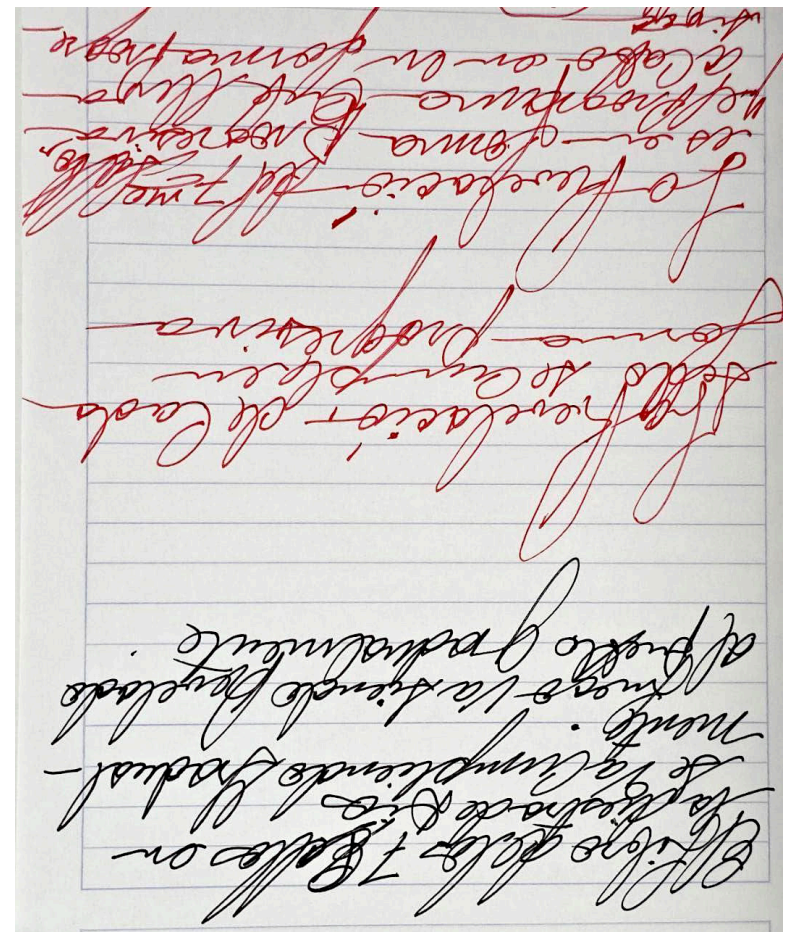 El Libro de los 7 Sellos en
la diestra de Dios
se va Cumpliendo Gradual-
mente.
y luego va siendo Revelado
al pueblo gradualmente.
La Revelación de Cada
sello se Cumple en
forma progresiva
La Revelación del 7mo Sello,
es en forma Progresiva
y el Programa que lleva
a Cabo en forma Progre-
siva